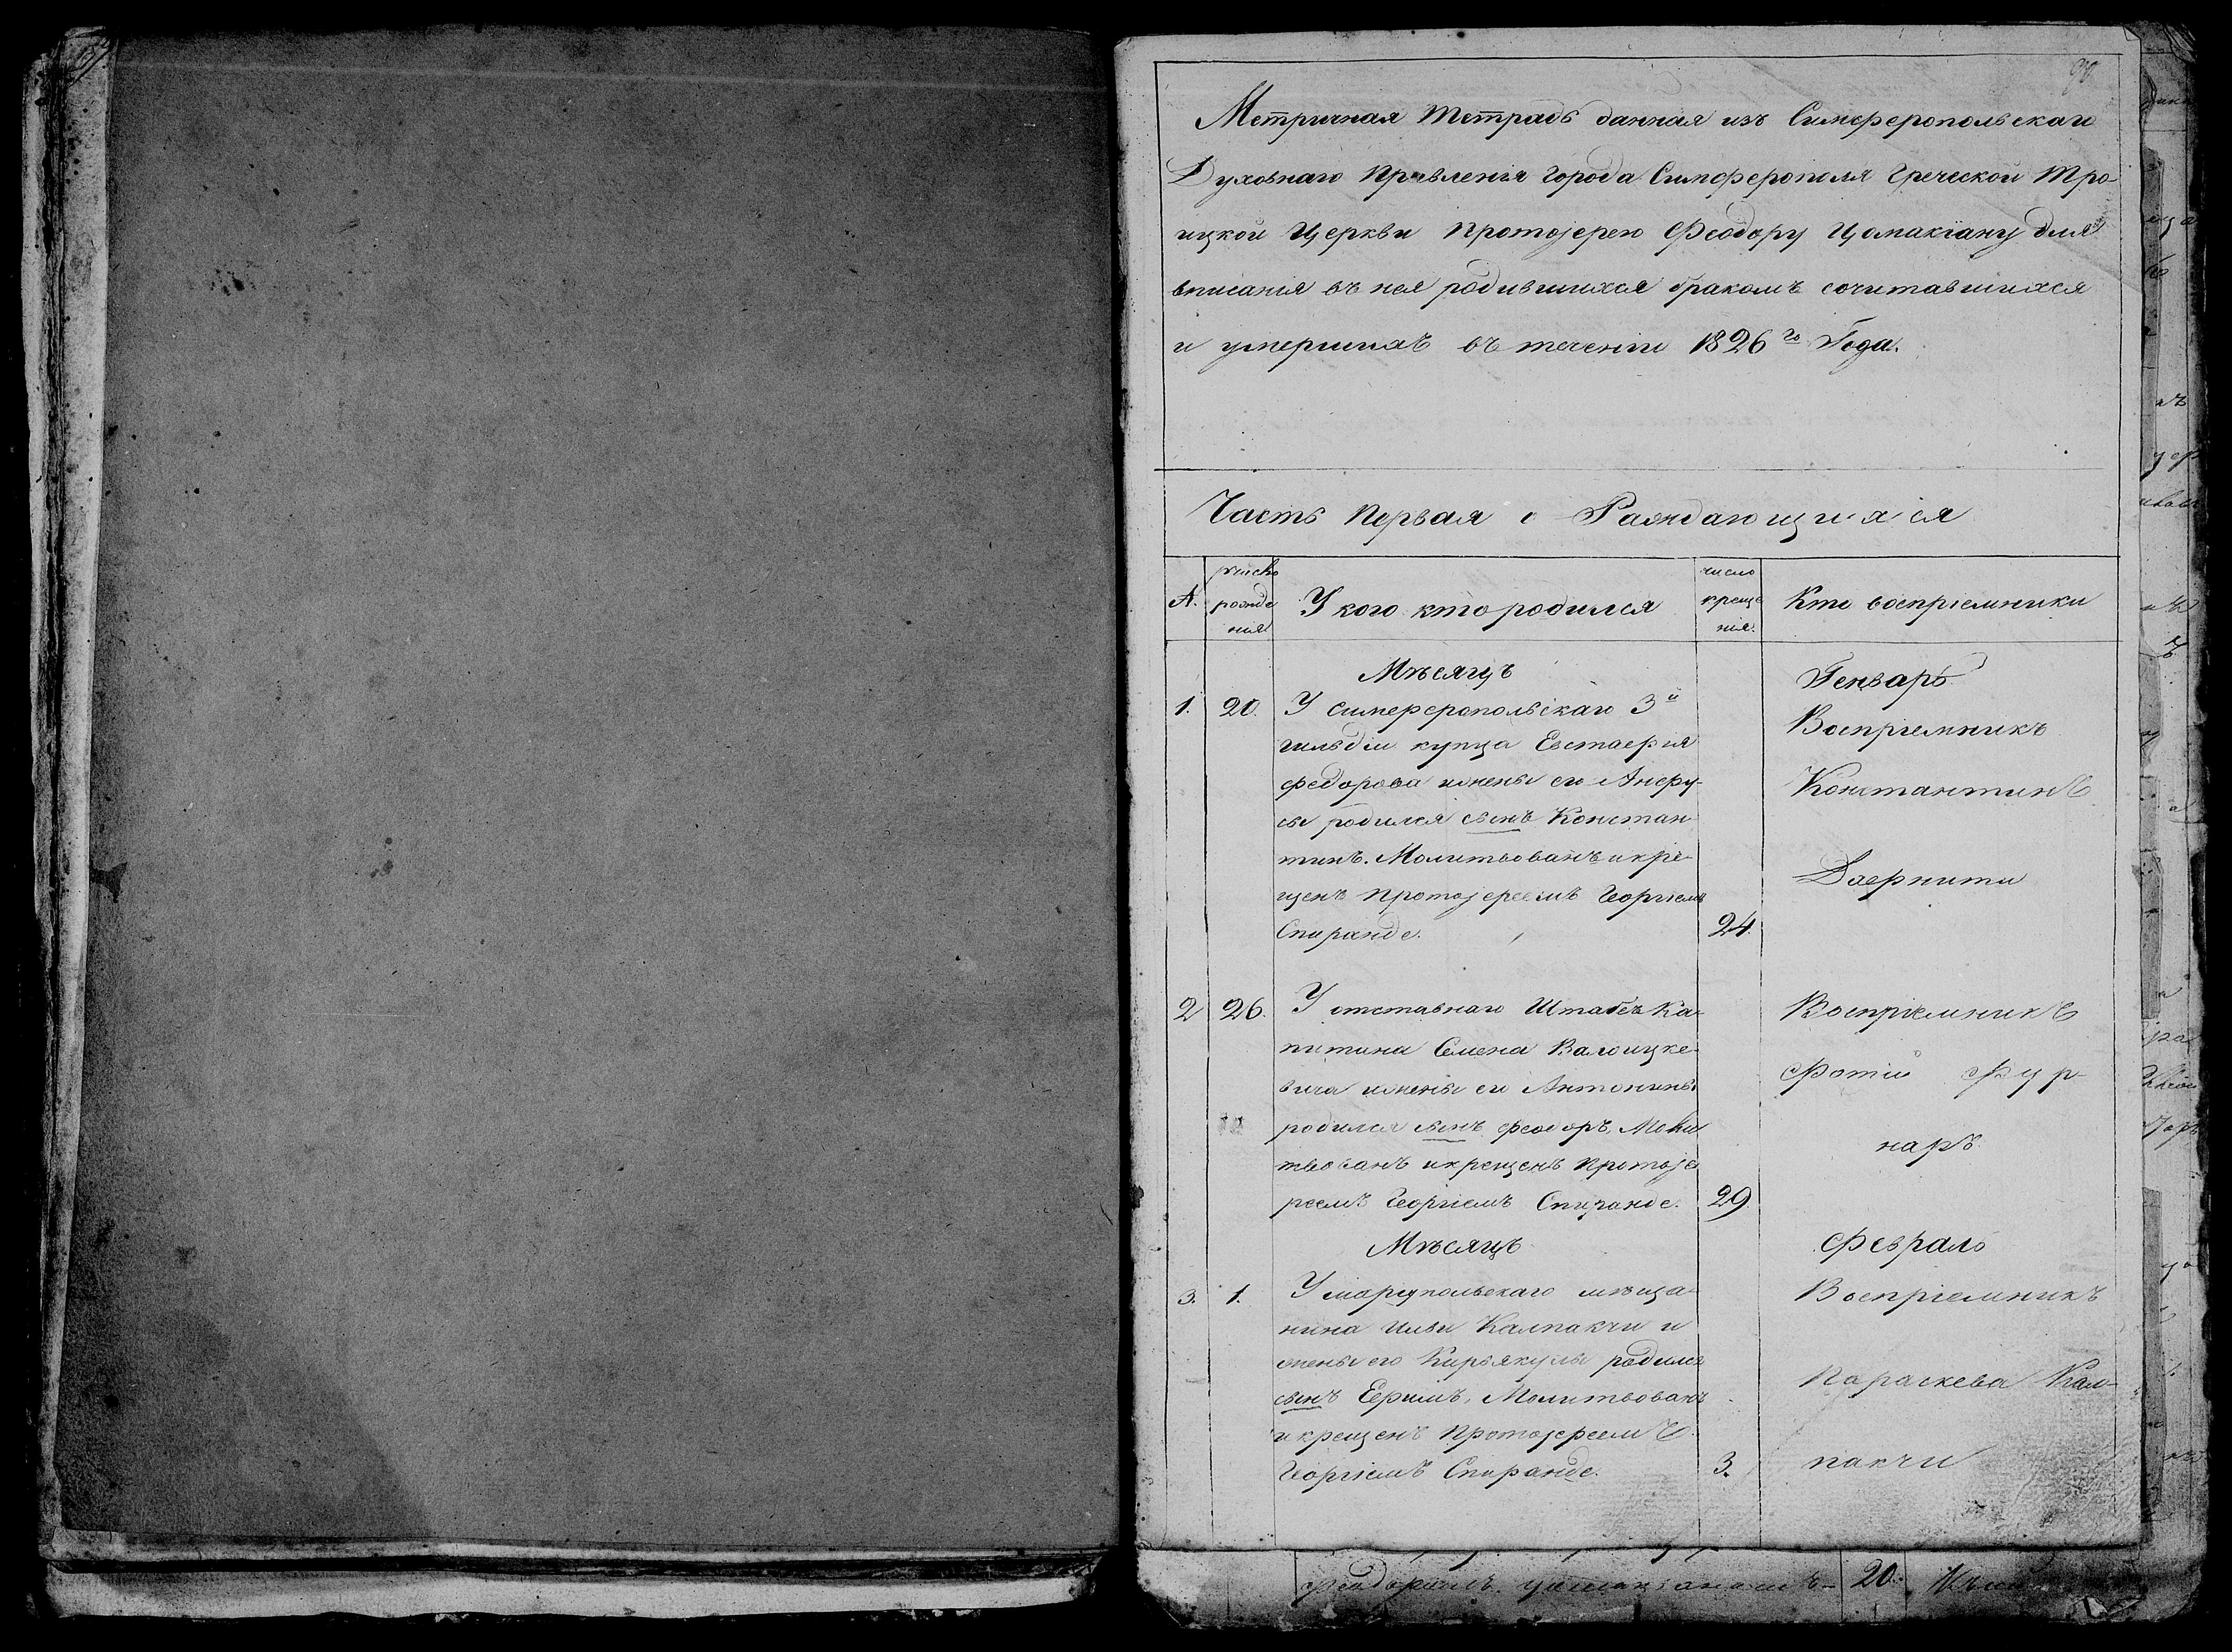 90
Метричная Тетрадь данная изъ Симферопольскаго
Духовнаго Правленія города Симферополя Греческой Тро-
ицкой Церкви Протоіерею Феодору Цомакіану для
вписанія въ нея родившихся бракомъ сочитавшихся
и умершихъ въ теченіи 1826го Года.
Часть Первая о Раждающихся
число рожденія
У кого кто родился
число крещенія.
Кто воспріемники
Мѣсяцъ Генварь
1. 20. У симферопольскаго 3й
гильдіи купца Евстафія
федорова ижены его Анфу-
сы родился сынъ Констан
тинъ. Молитвованъ икре-
щенъ Протоіереемъ Георгіемъ
Спиранде. 24.
Воспріемникъ
Константинъ
2 26. У отставнаго Штабсъ Ка-
питана Семена
вича ижены его Антонины
родился сынъ феодоръ, Моли
твованъ икрещенъ Протоіе
реемъ Георгіемъ Спиранде. 29.
Воспріемникъ
Фотій Фур-
наръ.
Мѣсяцъ Февраль
3. 1. У маріупольскаго мѣща-
нина Ильи Калпакчи и
жены его Кирьякулы родился
сынъ Ефимъ, Молитвованъ
и крещенъ Протоіереемъ
Георгіемъ Спиранде. 3.
Воспріемникъ
Параскева Кал-
пакчи
20.